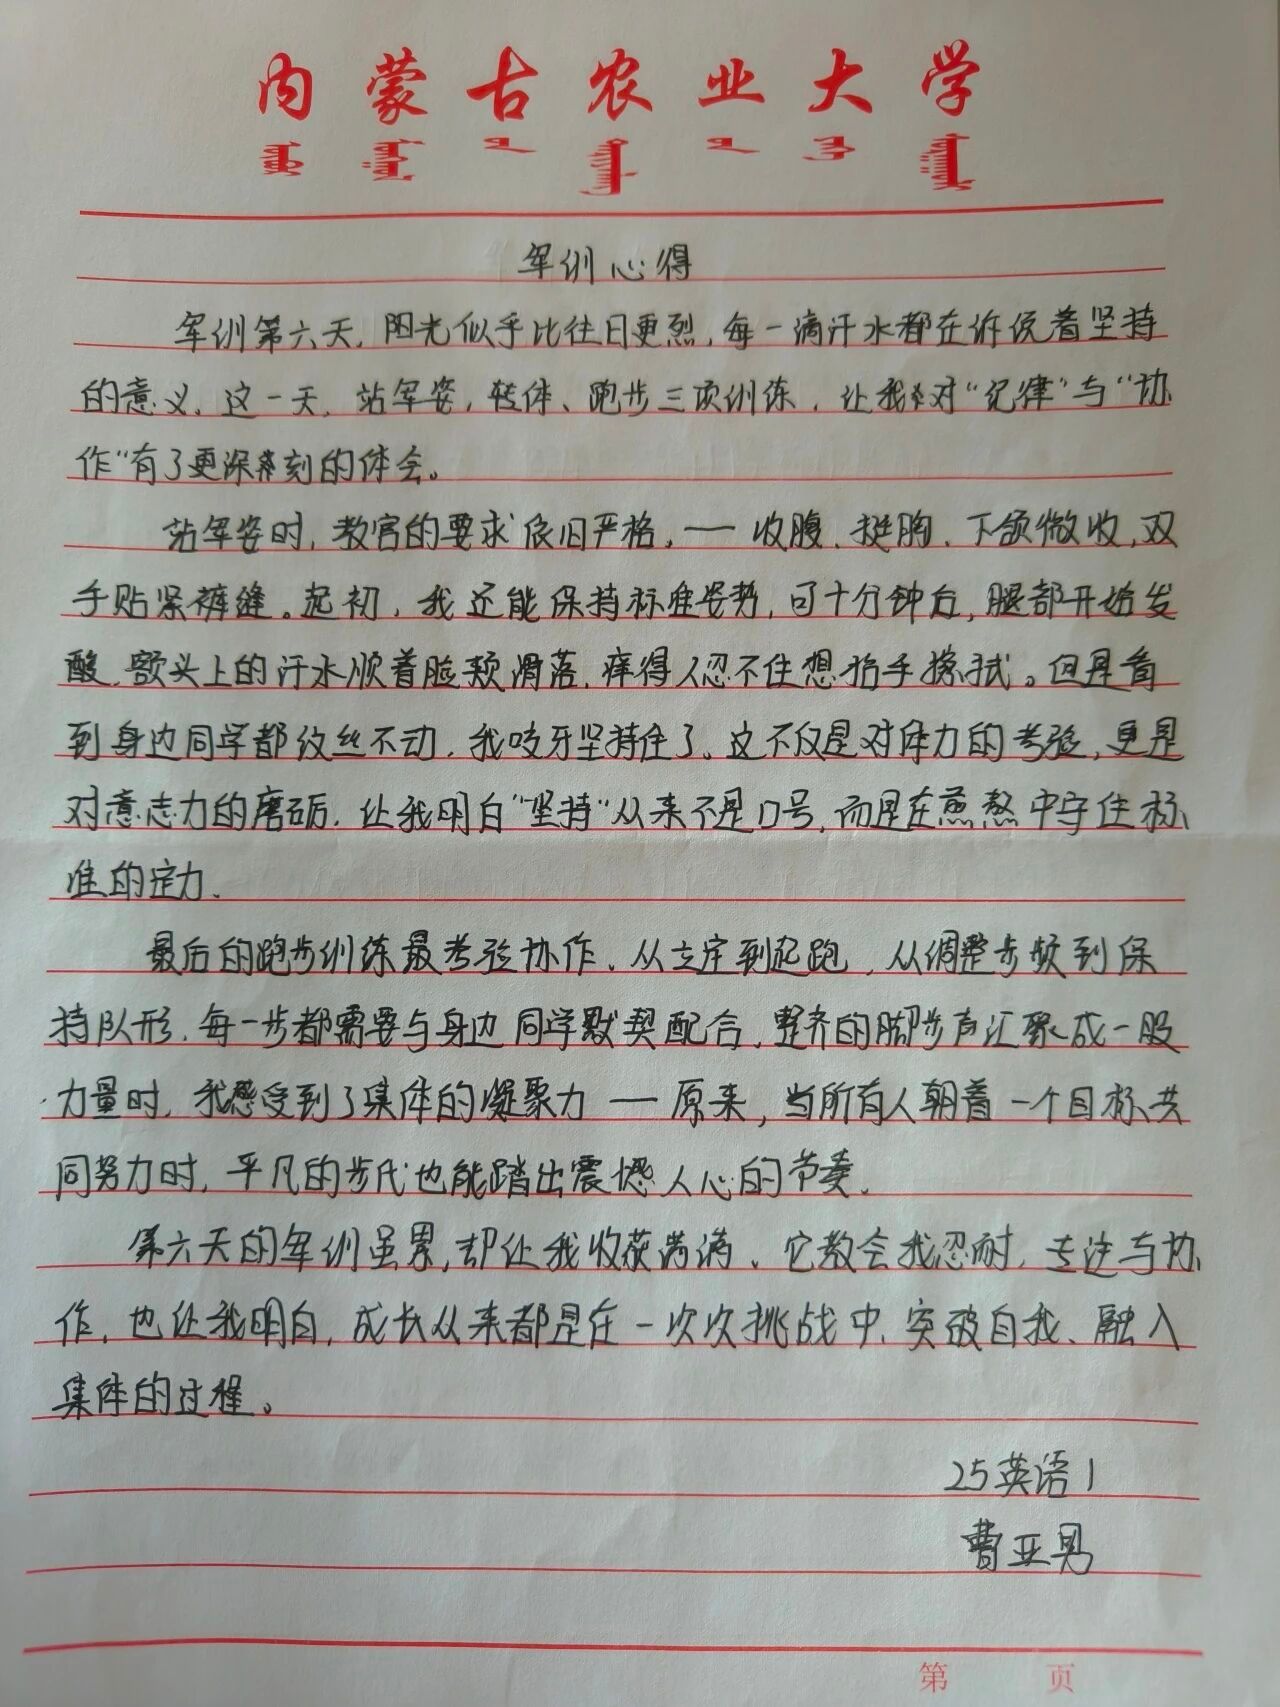 内蒙古农业大学
军训心得
军训第六天,阳光似乎比往日更烈,每一滴汗水都在诉说着坚持
的意义。这一天,站军姿,转体、跑步三项训练,让我对“纪律”与“协
作”有了更深刻的体会。
站军姿时,教官的要求依旧严格,——收腹、挺胸、下颌微收,双
手贴紧裤缝。起初,我还能保持标准姿势,可十分钟后,腿部开始发
酸,额头上的汗水顺着脸颊滑落,痒得人忍不住想抬手擦拭。但是看
到身边同学都纹丝不动,我咬牙坚持住了。这不仅是对体力的考验,更是
对意志力的磨砺,让我明白“坚持”从来不是口号,而是在煎熬中守住标
准的定力.
最后的跑步训练最考验协作。从立定到起跑,从调整步频到保
持队形,每一步都需要与身边同学默契配合,整齐的脚步声汇聚成一股
力量时,我感受到了集体的凝聚力——原来,当所有人朝着一个目标共
同努力时,平凡的步伐也能踏出震撼人心的节奏.
第六天的军训虽累,却让我收获满满。它教会我忍耐,专注与协
作,也让我明白,成长从来都是在一次次挑战中、突破自我、融入
集体的过程。
25英语1
曹亚男
第 页